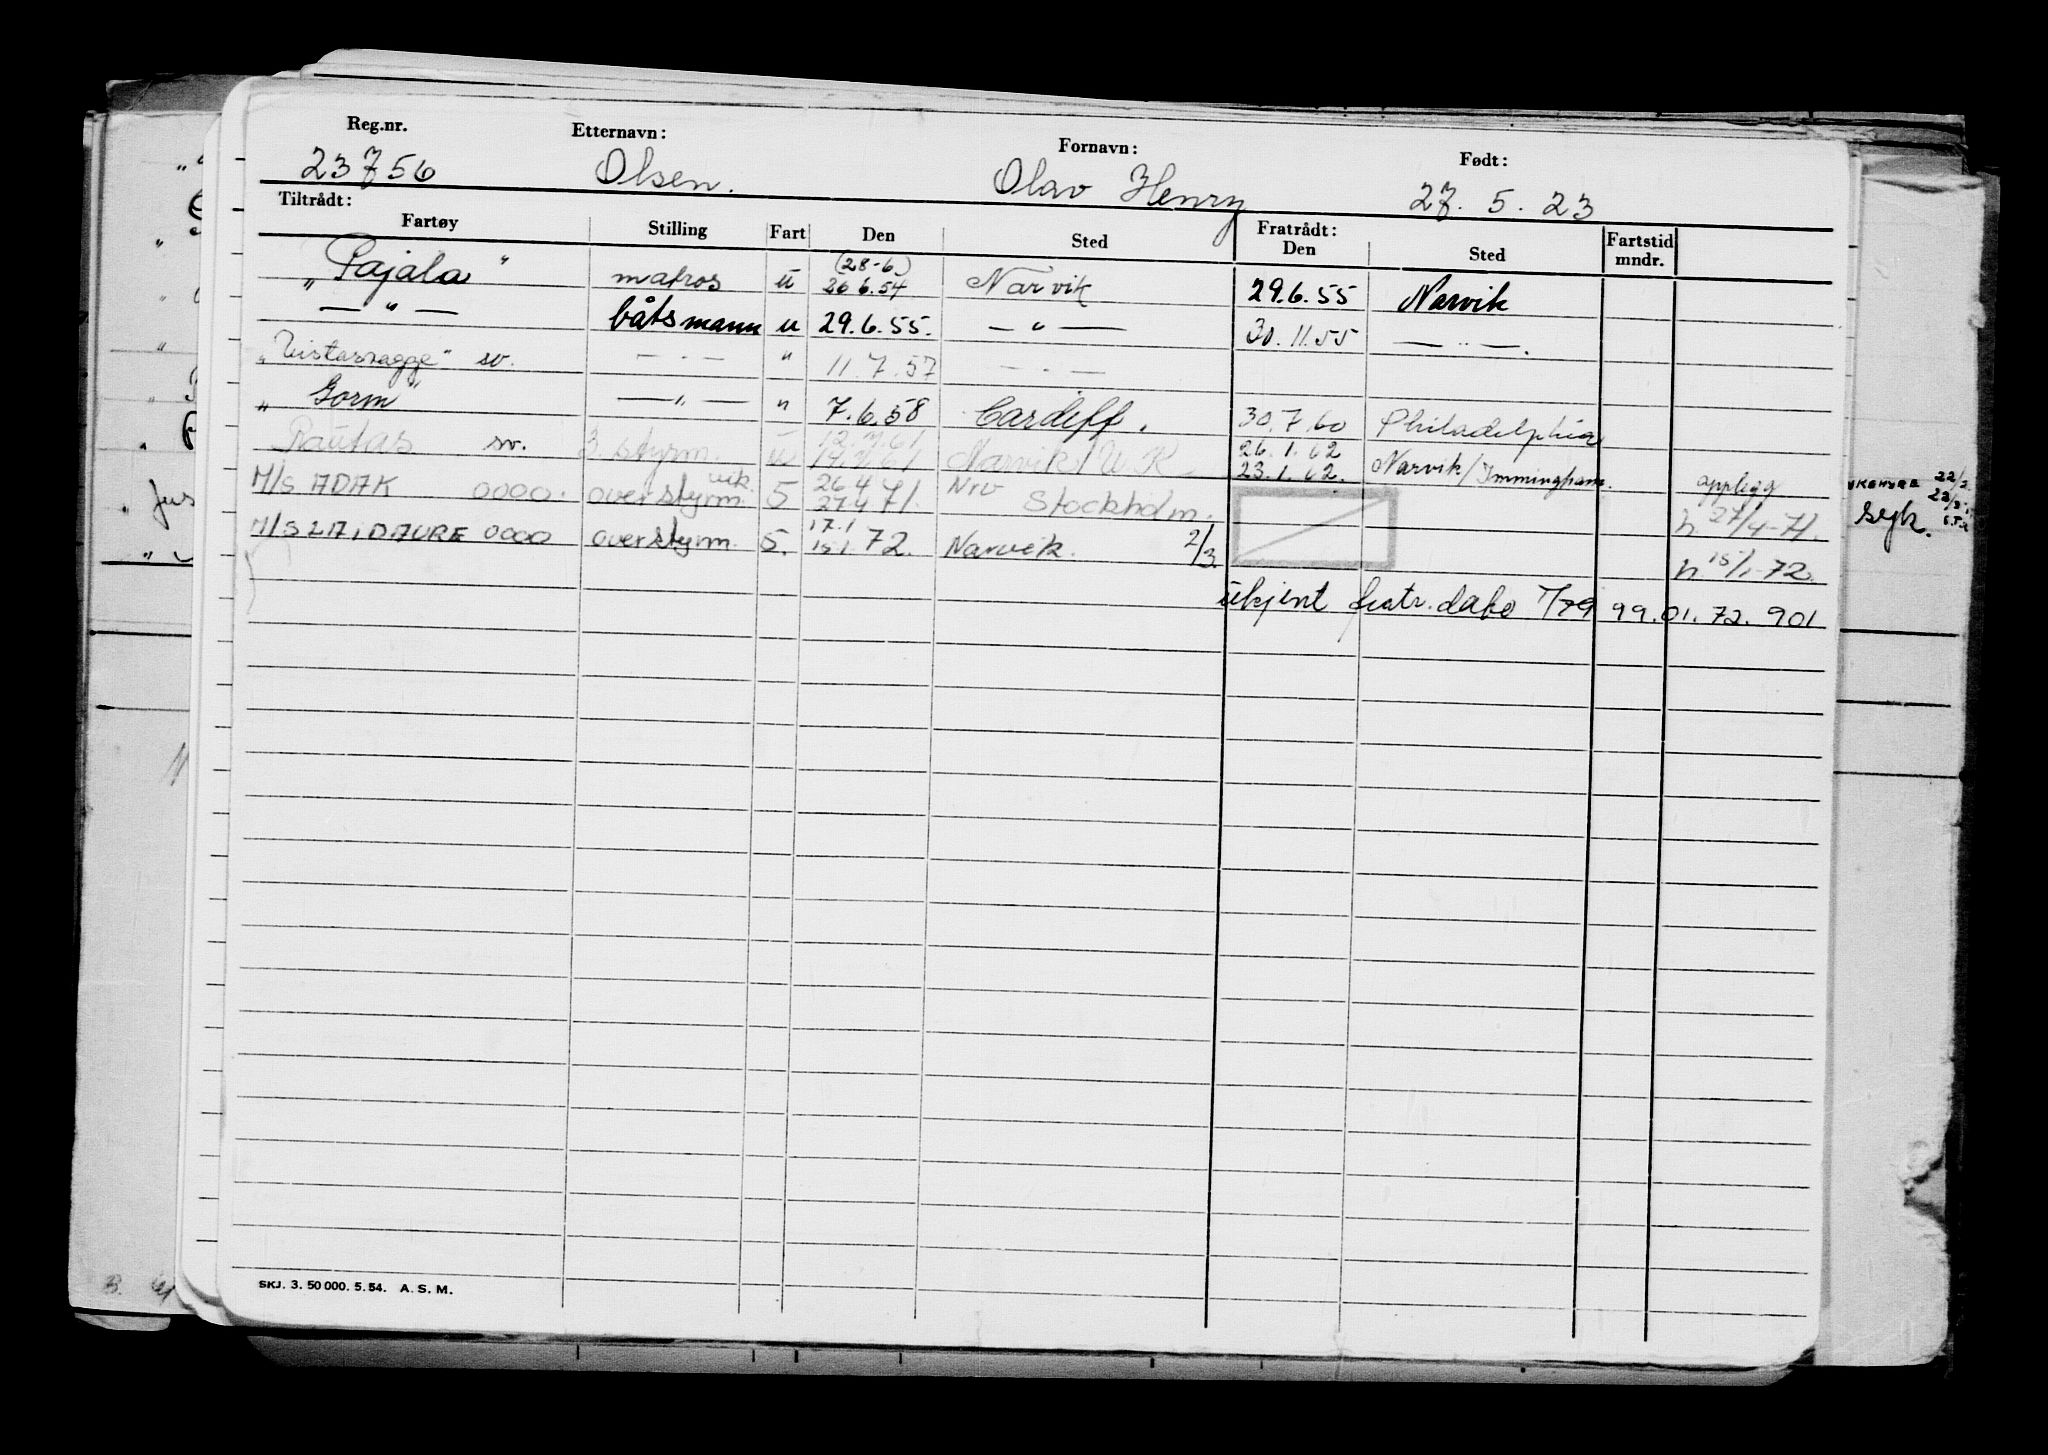 Reg.nr. Etternavn: Fornavn: Født:
23756 Olsen. Olav Henry 27. 5. 23
Tiltrådt: Fratrådt:
Fartøy Stilling Fart Den Sted Den Sted Fartstid mndr.
(28-6)
„Pajala" matros u 26 6.54 Narvik 29.6.55 Narvik
— " — båtsmann u 29.6.55. — " — 30.11.55 — " —.
„Vistasvagge" sv. — " — " 11.7.57 — " —
„Gorm" — " — " 7.6.58 Cardiff. 30.7.60 Philadelphia
Rautas sv. 3 styrm. u Narvik/U.K. 26.1.62 23.1.62. Narvik/Immingham.
M/S ADAK 0000. overstyrm. vik. 5 26 4 27 4 71. Nrv Stockholm. opplegg
n 27/4-71.
M/S LAIDAURE 0000 overstyrm. 5. 17.1 15.1 72. Narvik. 2/3.
n 15/1-72.
ukjent fratr. dato 1/79 99.01.72.901
22/2
syk.
SKJ. 3. 50 000. 5. 54. A. S. M.